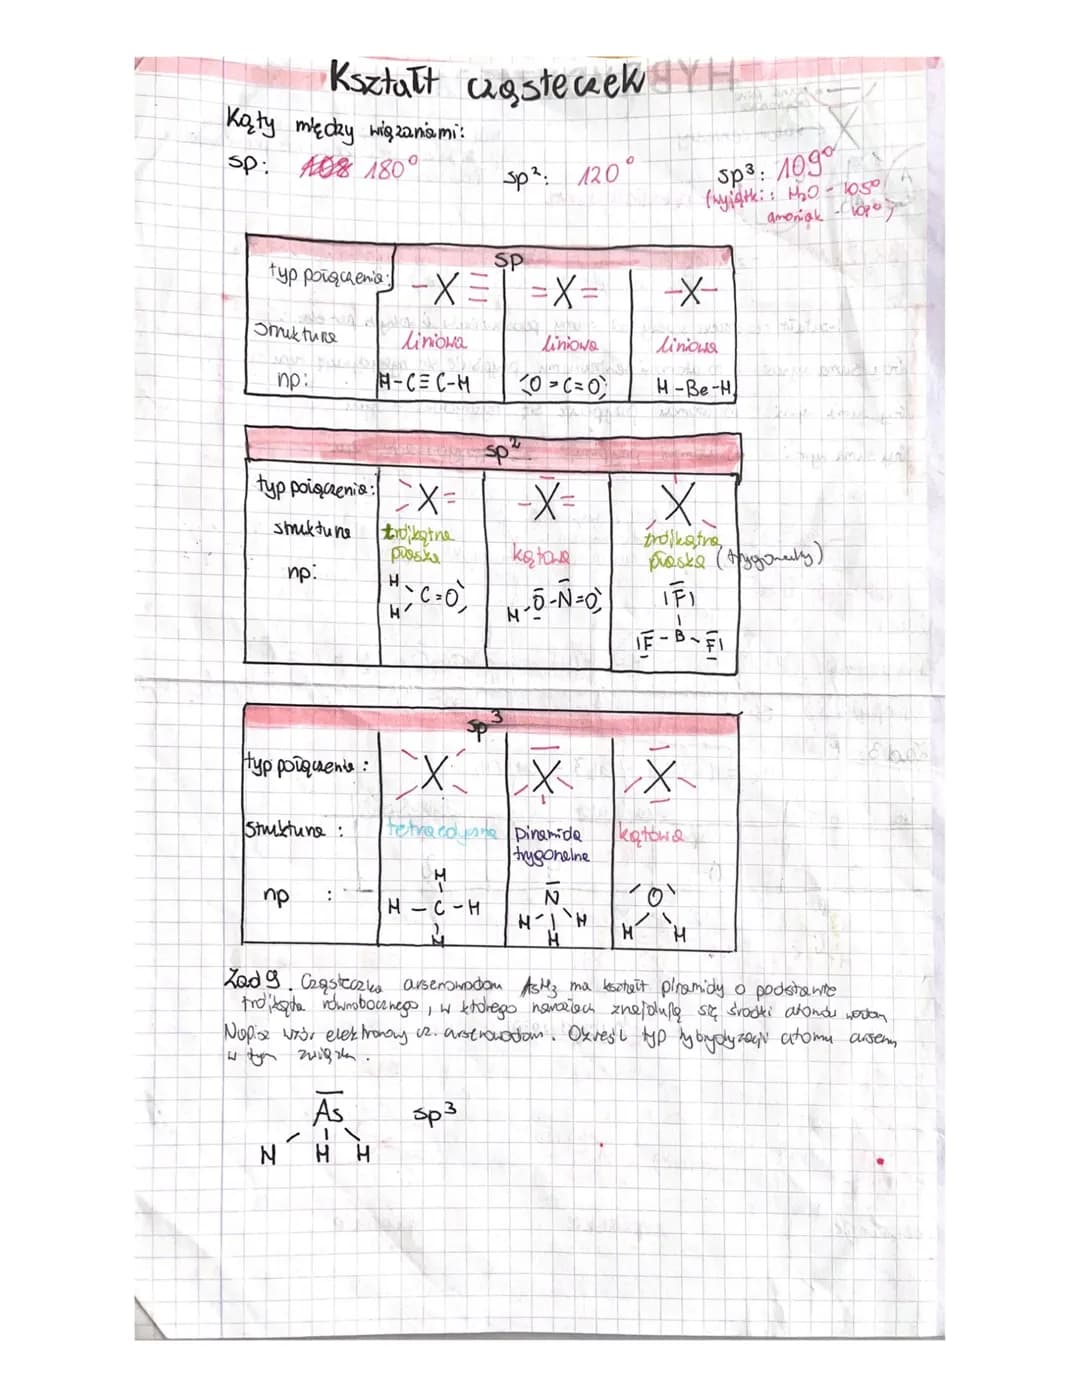 Kształt cząsteczek
Kąty między wiązaniami:
sp: 180° sp²: 120° sp³: 109°
(wyjątki: H₂O - 105°
amoniak - 107°)
sp
typ połączenia: -X≡ =X= -X-
struktura liniowa liniowa liniowa
np: H-C≡C-H O=C=O H-Be-H
sp²
typ połączenia: X= -X= X
struktura trójkątna płaska kątowa trójkątna płaska (trygonalny)
np: H H C=O H-O-N=O F F-B-F
sp³
typ połączenia: X X X
struktura: tetraedryczna piramida trygonalna kątowa
np: H H-C-H H N H H H O H H
Zad 9. Cząsteczka arsenowodoru AsH₃ ma kształt piramidy o podstawie
trójkąta równobocznego, w którego narożach znajdują się środki atomów wodoru
Napisz wzór elektronowy cz. arsenowodoru. Określ typ hybrydyzacji atomu arsenu
w tym związku.
As sp³
H H H